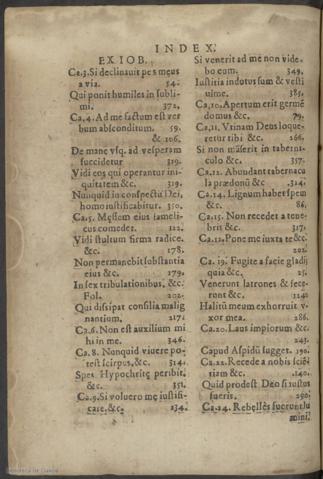 INDEX.
EX IOB.
Ca.3. Si declinauit pes meus
a via. 54.
Qui ponit humiles in subli-
mi. 372.
Ca,4. Ad me factum est ver
bum absconditum. 59.
& 106.
De mane vsq. ad vesperam
succidetur 319.
Vidi eos qui operantur ini-
quitatem &c. 319.
Nunquid in conspectu Dei,
homo iustificabitur. 350.
Ca.5. Messem eius fameli-
cus comedet. 122.
Vidi stultum firma radice.
&c. 178.
Non permanebit substantia
eius &c. 179.
In sex tribulationibus, &c.
Fol. 202.
Qui dissipat consilia malig
nantium. 217.
Ca.6. Non est auxilium mi
hi in me. 346.
Ca.8. Nonquid viuere po-
test scirpus, &c. 314.
Spes Hypochritę peribit,
&c. 351.
Ca.9. Si voluero me iustifi-
care, &c. 234.
Si venerit ad me non vide-
bo eum. 349.
Iustitia indutus sum & vesti
uime. 385.
Ca,10. Apertum erit germē
domus &c. 79.
Ca,11. Vtinam Deus loque-
retur tibi &c. 266.
Si non manserit in taberni-
culo &c. 357.
Ca.12. Abundant tabernacu
la prædonū &c. .314.
Ca.14. Lignum habet spem
&c. 86.
Ca.15. Non recedet a tene-
bris &c. 317.
Ca.17. Pone me iuxta te &c.
202.
Ca.19. Fugite a facie gladij
quia &c. 25.
Venerunt latrones & fece-
runt &c. 114.
Halitū meum exhorruit v-
xor mea. 286.
Ca.20. Laus impiorum &c.
243.
Caput Aspidū sugget. 190.
Ca.22. Recede a nobis sciē-
tiam &c. .140.
Quid prodest Deo si iustus
fueris. 290.
Ca.24. Rebelles fuerunt lu
mini.